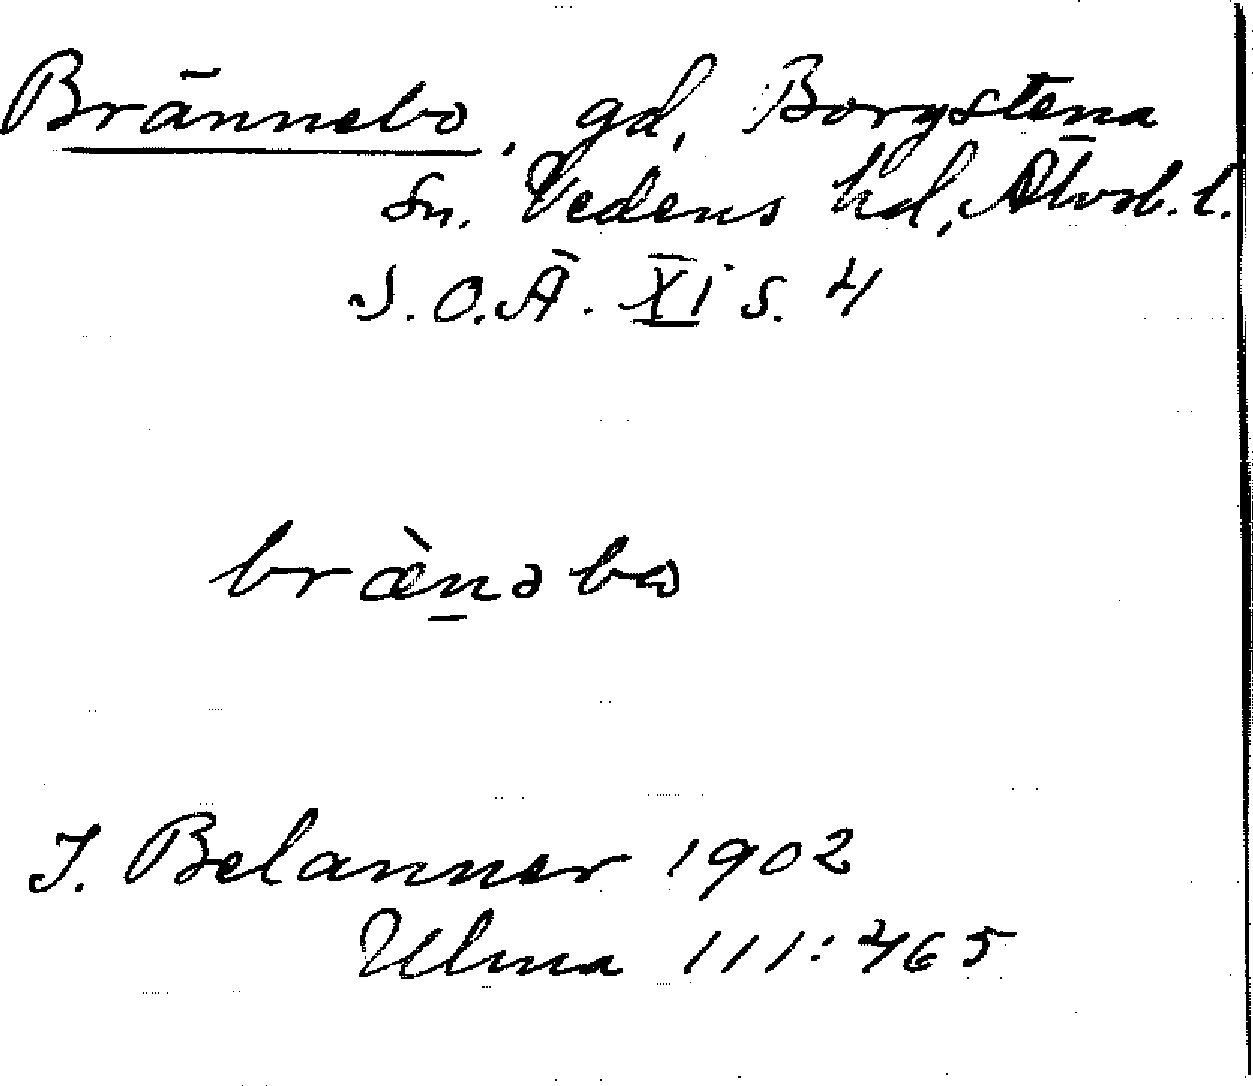 Brännebo, gd, Borgstena
sn. Vedens hd, Älvsb. l.
S.O.Ä. XI s. 4
bræ̀nəbω
I. Belanner 1902
Ulma 111:465